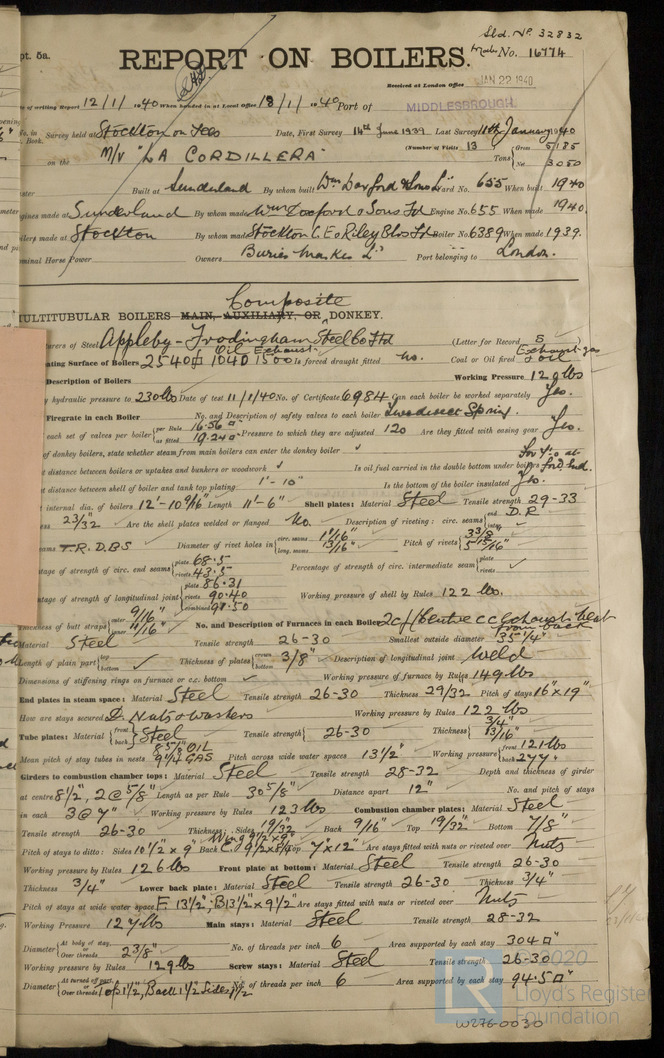 Sld. No. 32832
pt. 5a.
REPORT ON BOILERS.
No. 16774
Received at London Office JAN 22 1940
of writing Report 12/1/1940 When handed in at Local Office 18/1/1940 Port of MIDDLESBROUGH
No. in Survey held at Stockton on Tees Date, First Survey 14th June 1939 Last Survey 11th January 1940
Book. (Number of Visits 13) Gross 5185
on the M/V "LA CORDILLERA" Tons Net 3050
Built at Sunderland By whom built Wm Doxford & Sons Ld Yard No. 655 When built 1940
gines made at Sunderland By whom made Wm Doxford & Sons Ld Engine No. 655 When made 1940.
oilers made at Stockton By whom made Stockton C.E & Riley Blrs Ld Boiler No. 6389 When made 1939.
ominal Horse Power Owners Buries Markes Ld Port belonging to London.
Composite
ULTITUBULAR BOILERS MAIN, AUXILIARY, OR DONKEY.
urers of Steel Appleby-Frodingham Steel Co Ltd (Letter for Record S
Oil Exhaust Exhaust gas
ating Surface of Boilers 2540 1040 1500 Is forced draught fitted no. Coal or Oil fired & oil
Description of Boilers Working Pressure 120 lbs
y hydraulic pressure to 230 lbs Date of test 11/1/40 No. of Certificate 6984 Can each boiler be worked separately Yes.
Firegrate in each Boiler No. and Description of safety valves to each boiler Spring.
each set of valves per boiler per Rule 16.56 as fitted 19.24 Pressure to which they are adjusted 120 Are they fitted with easing gear Yes.
of donkey boilers, state whether steam from main boilers can enter the donkey boiler
t distance between boilers or uptakes and bunkers or woodwork Is oil fuel carried in the double bottom under boilers
t distance between shell of boiler and tank top plating 1'-10" Is the bottom of the boiler insulated Yes.
internal dia. of boilers 12'-10 9/16" Length 11'-6" Shell plates: Material Steel Tensile strength 29-33
ess 23/32 Are the shell plates welded or flanged No. Description of riveting: circ. seams end D.R inter.
eams T.R.D.B.S Diameter of rivet holes in circ. seams 1 1/16" long. seams 13/16" Pitch of rivets 3 3/8 5 15/16"
tage of strength of circ. end seams plate 68.5 rivets 43.5 Percentage of strength of circ. intermediate seam plate rivets
tage of strength of longitudinal joint plate 86.31 rivets 90.40 combined 98.50 Working pressure of shell by Rules 122 lbs.
Thickness of butt straps outer 9/16" inner 11/16" No. and Description of Furnaces in each Boiler 2 c.f. (Centre c.c. Exhaust heat from back
Material Steel Tensile strength 26-30 Smallest outside diameter 35 1/4"
Length of plain part top bottom Thickness of plates crown bottom 3/8" Description of longitudinal joint Weld
Dimensions of stiffening rings on furnace or c.c. bottom Working pressure of furnace by Rules 149 lbs
End plates in steam space: Material Steel Tensile strength 26-30 Thickness 29/32 Pitch of stays 16" x 19"
How are stays secured D. Nuts & washers Working pressure by Rules 122 lbs
Tube plates: Material front back Steel Tensile strength 26-30 Thickness 3/4" 13/16"
Mean pitch of stay tubes in nests 8 5/8" OIL 9 1/4" GAS Pitch across wide water spaces 13 1/2" Working pressure front 121 lbs back 277"
Girders to combustion chamber tops: Material Steel Tensile strength 28-32 Depth and thickness of girder
at centre 8 1/2", 2 @ 5/8" Length as per Rule 30 5/8" Distance apart 12" No. and pitch of stays
in each 3 @ 7" Working pressure by Rules 123 lbs Combustion chamber plates: Material Steel
Tensile strength 26-30 Thickness: Sides 19/32 Back 9/16" Top 19/32 Bottom 7/8"
Wing 9 1/2 x 9"
Pitch of stays to ditto: Sides 10 1/2" x 9" Back C. 9 1/2 x 8 3/4 Top 7" x 12" Are stays fitted with nuts or riveted over Nuts
Working pressure by Rules 126 lbs Front plate at bottom: Material Steel Tensile strength 26-30
Thickness 3/4" Lower back plate: Material Steel Tensile strength 26-30 Thickness 3/4"
Pitch of stays at wide water space F. 13 1/2"; B 13 1/2" x 9 1/2" Are stays fitted with nuts or riveted over Nuts
Working Pressure 127 lbs Main stays: Material Steel Tensile strength 28-32
Diameter At body of stay, or Over threads 2 3/8" No. of threads per inch 6 Area supported by each stay 304
Working pressure by Rules 129 lbs Screw stays: Material Steel Tensile strength 26-30
Diameter At turned off part, or Over threads Top 1 1/2", Back 1 1/2" Sides 1 1/2 No. of threads per inch 6 Area supported by each stay 94.5
© 2020
LR
Lloyd's Register
Foundation
W276-0030